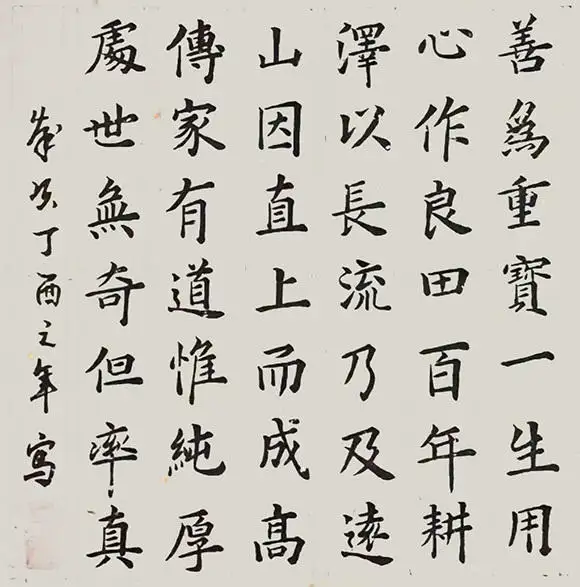 善為重寶一生用
心作良田百年耕
澤以長流乃及遠
山因直上而成高
傳家有道惟純厚
處世無奇但率真
歲次丁酉之年寫